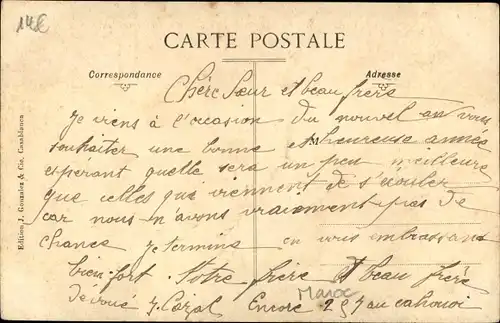 14€
CARTE POSTALE
Correspondance
Adresse
Chère Sœur et beau frère
Je viens à l'occasion du nouvel an vous
souhaiter une bonne et heureuse année
M
espérant quelle sera un peu meilleure
que celles qui viennent de s'écouler
car nous n'avons vraiement pas de
chance Je termine en vous embrassant
bien fort. Votre frère et beau frère
dévoué J. Cazal Encore 257 au cahouoi
Maroc
Edition J. Gonzalez & Cie, Casablanca